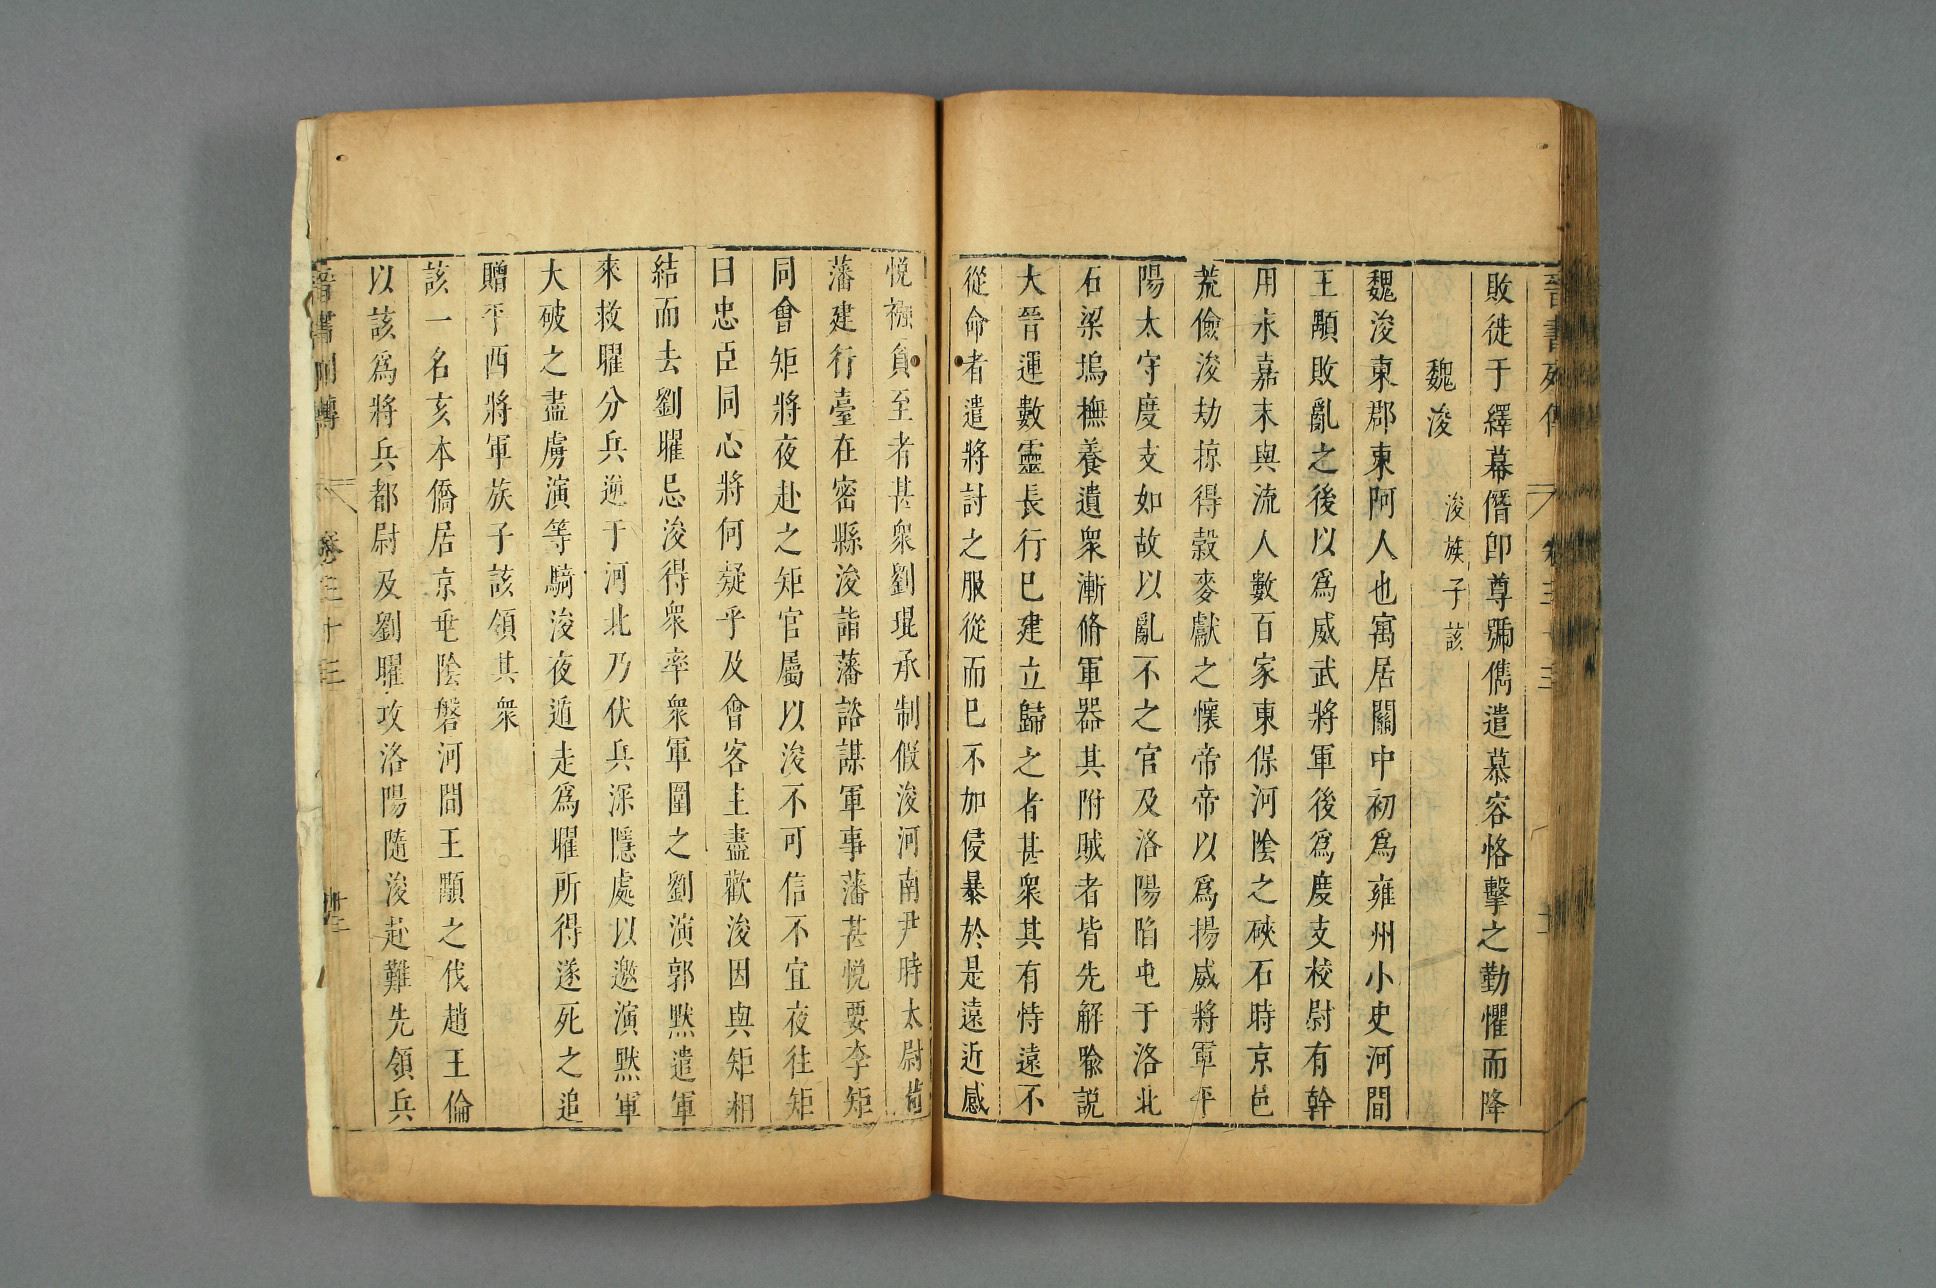 晉書列傳 卷三十三
敗徙于繹幕僭卽尊號儁遣慕容恪擊之勤懼而降
魏浚 浚族子該
魏浚東郡東阿人也寓居關中初爲雍州小史河間
王顒敗亂之後以爲威武將軍後爲度支校尉有幹
用永嘉末與流人數百家東保河陰之硤石時京邑
荒儉浚劫掠得穀麥獻之懷帝帝以爲揚威將軍平
陽太守度支如故以亂不之官及洛陽陷屯于洛北
石梁塢撫養遺衆漸脩軍器其附賊者皆先解喩説
大晉運數靈長行已建立歸之者甚衆其有恃遠不
從命者遣將討之服從而已不加侵暴於是遠近感
悅襁負至者甚衆劉琨承制假浚河南尹時太尉荀
藩建行臺在密縣浚詣藩諮謀軍事藩甚悅要李矩
同會矩將夜赴之矩官屬以浚不可信不宜夜往矩
曰忠臣同心將何疑乎及會客主盡歡浚因與矩相
結而去劉曜忌浚得衆率衆軍圍之劉演郭默遣軍
來救曜分兵逆于河北乃伏兵深隱處以邀演默軍
大破之盡虜演等騎浚夜遁走爲曜所得遂死之追
贈平西將軍族子該領其衆
該一名亥本僑居京兆陰磐河間王顒之伐趙王倫
以該爲將兵都尉及劉曜攻洛陽隨浚赴難先領兵
晉書列傳 卷三十三